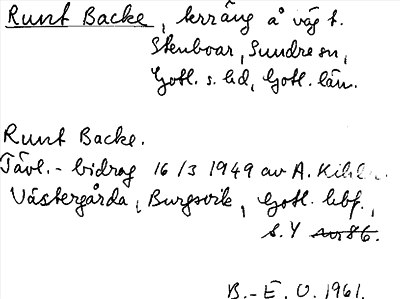 Runt Backe, terräng å väg t.
Stenboar, Sundre sn,
Gotl. s. hd, Gotl. län.
Runt Backe.
Tävl.- bidrag 16/3 1949 av A. Kihln.
Västergårda, Burgsvik, Gotl. hbf.,
s. Y
B.-E. O. 1961.